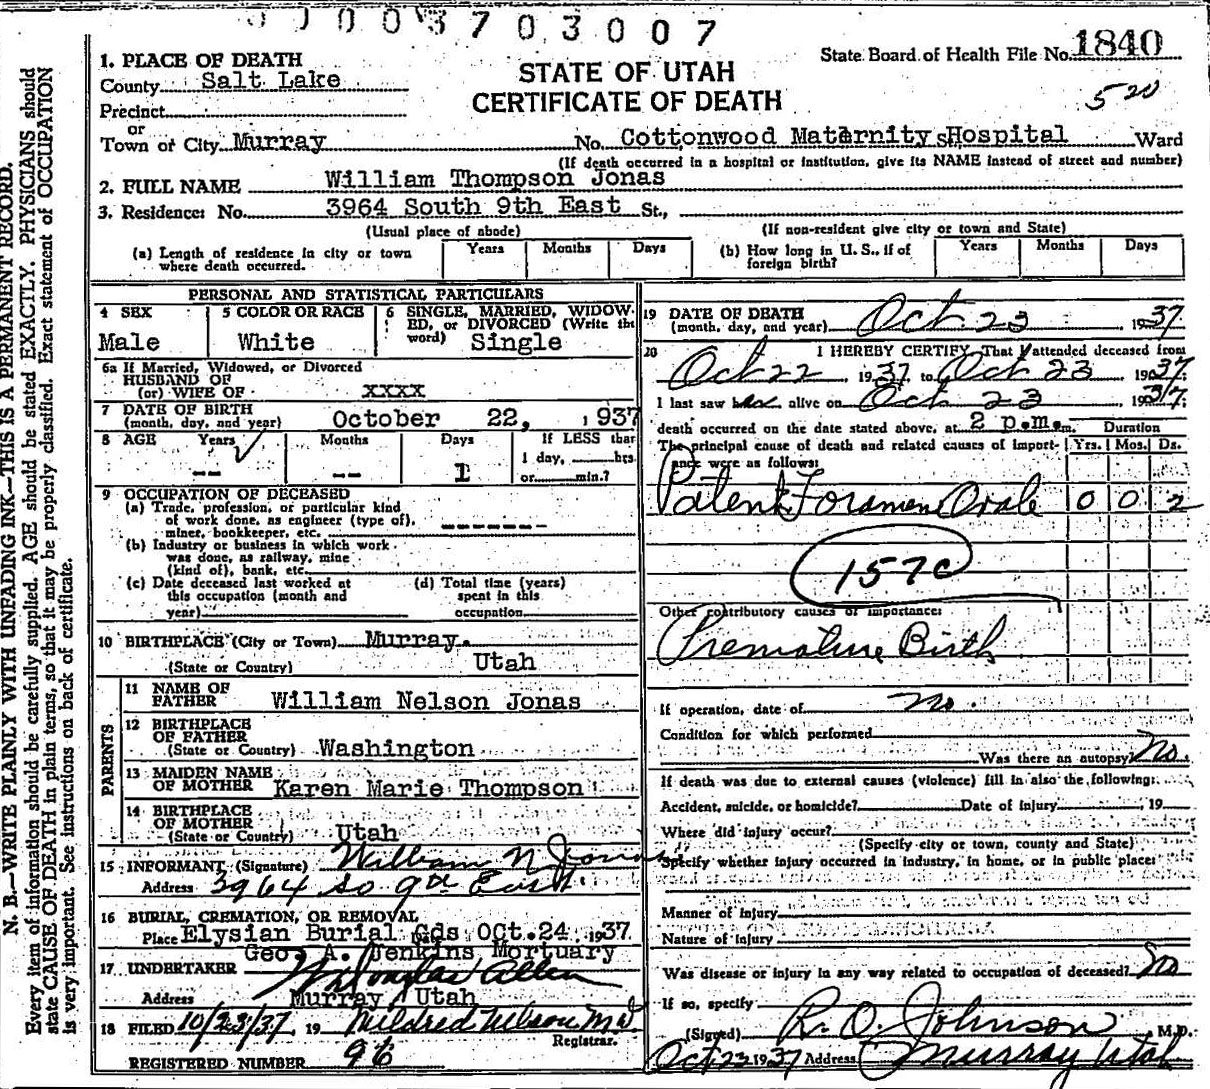 0 0 0 0 3 7 0 3 0 0 7
State Board of Health File No. 1840
520
STATE OF UTAH
CERTIFICATE OF DEATH
1. PLACE OF DEATH
County Salt Lake
Precinct
or
Town or City Murray No. Cottonwood Maternity Hospital St. Ward
(If death occurred in a hospital or institution, give its NAME instead of street and number)
2. FULL NAME William Thompson Jonas
3. Residence: No. 3964 South 9th East St.,
(Usual place of abode) (If non-resident give city or town and State)
(a) Length of residence in city or town where death occurred. Years Months Days (b) How long in U. S., if of foreign birth? Years Months Days
PERSONAL AND STATISTICAL PARTICULARS
4 SEX Male
5 COLOR OR RACE White
6 SINGLE, MARRIED, WIDOWED, or DIVORCED (Write the word) Single
6a If Married, Widowed, or Divorced
HUSBAND OF
(or) WIFE OF XXXX
7 DATE OF BIRTH (month, day, and year) October 22, , 1937
8 AGE Years -- Months -- Days 1 If LESS than 1 day, hrs. or min.?
9 OCCUPATION OF DECEASED
(a) Trade, profession, or particular kind of work done, as engineer (type of), miner, bookkeeper, etc. -------
(b) Industry or business in which work was done, as railway, mine (kind of), bank, etc.
(c) Date deceased last worked at this occupation (month and year)
(d) Total time (years) spent in this occupation
10 BIRTHPLACE (City or Town) Murray.
(State or Country) Utah
PARENTS
11 NAME OF FATHER William Nelson Jonas
12 BIRTHPLACE OF FATHER (State or Country) Washington
13 MAIDEN NAME OF MOTHER Karen Marie Thompson
14 BIRTHPLACE OF MOTHER (State or Country) Utah
15 INFORMANT (Signature) William N Jonas
Address 3964 So 9th East
16 BURIAL, CREMATION, OR REMOVAL
Place Elysian Burial Gds Oct. 24, 1937
Geo. A. Jenkins Mortuary
17 UNDERTAKER Douglas Allen
Address Murray Utah
18 FILED 10/23/37, 19 Mildred Nelson M.D.
Registrar.
REGISTERED NUMBER 96
19 DATE OF DEATH (month, day, and year) Oct 23, 1937
20 I HEREBY CERTIFY, That I attended deceased from
Oct 22, 1937, to Oct 23, 1937.
I last saw him alive on Oct 23, 1937;
death occurred on the date stated above, at 2 p.m. m. Duration
The principal cause of death and related causes of importance were as follows: Yrs. Mos. Ds.
Patent Foramen Ovale 0 0 2
157c
Other contributory causes of importance:
Premature Birth
If operation, date of no.
Condition for which performed
Was there an autopsy? No
If death was due to external causes (violence) fill in also the following:
Accident, suicide, or homicide? Date of injury , 19
Where did injury occur?
(Specify city or town, county and State)
Specify whether injury occurred in industry, in home, or in public place:
Manner of injury
Nature of injury
Was disease or injury in any way related to occupation of deceased? No
If so, specify
(Signed) R. O. Johnson, M.D.
Oct 23 1937 Address Murray Utah
N. B.—WRITE PLAINLY WITH UNFADING INK—THIS IS A PERMANENT RECORD.
Every item of information should be carefully supplied. AGE should be stated EXACTLY. PHYSICIANS should
state CAUSE OF DEATH in plain terms, so that it may be properly classified. Exact statement of OCCUPATION
is very important. See instructions on back of certificate.